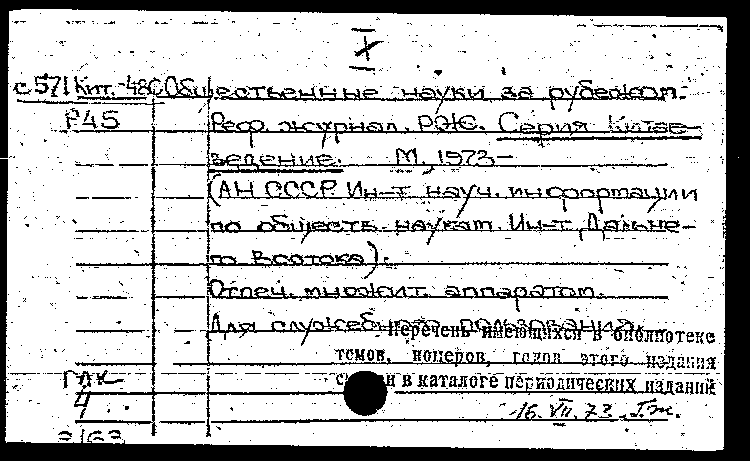 X
с571 Кит.-480 Общественные науки за рубежом.
Р45 Реф. журнал. РЖ. Серия Китае-
ведение. М., 1973-
(АН СССР. Ин-т науч. информации
по обществ. наукам. Ин-т Дальне-
го Востока).
Отпеч. множит. аппаратом.
Для служебного пользования.
Перечень имеющихся в библиотеке
томов, номеров, годов этого издания
в каталоге периодических изданий
ГПК
4
16.VII.73.